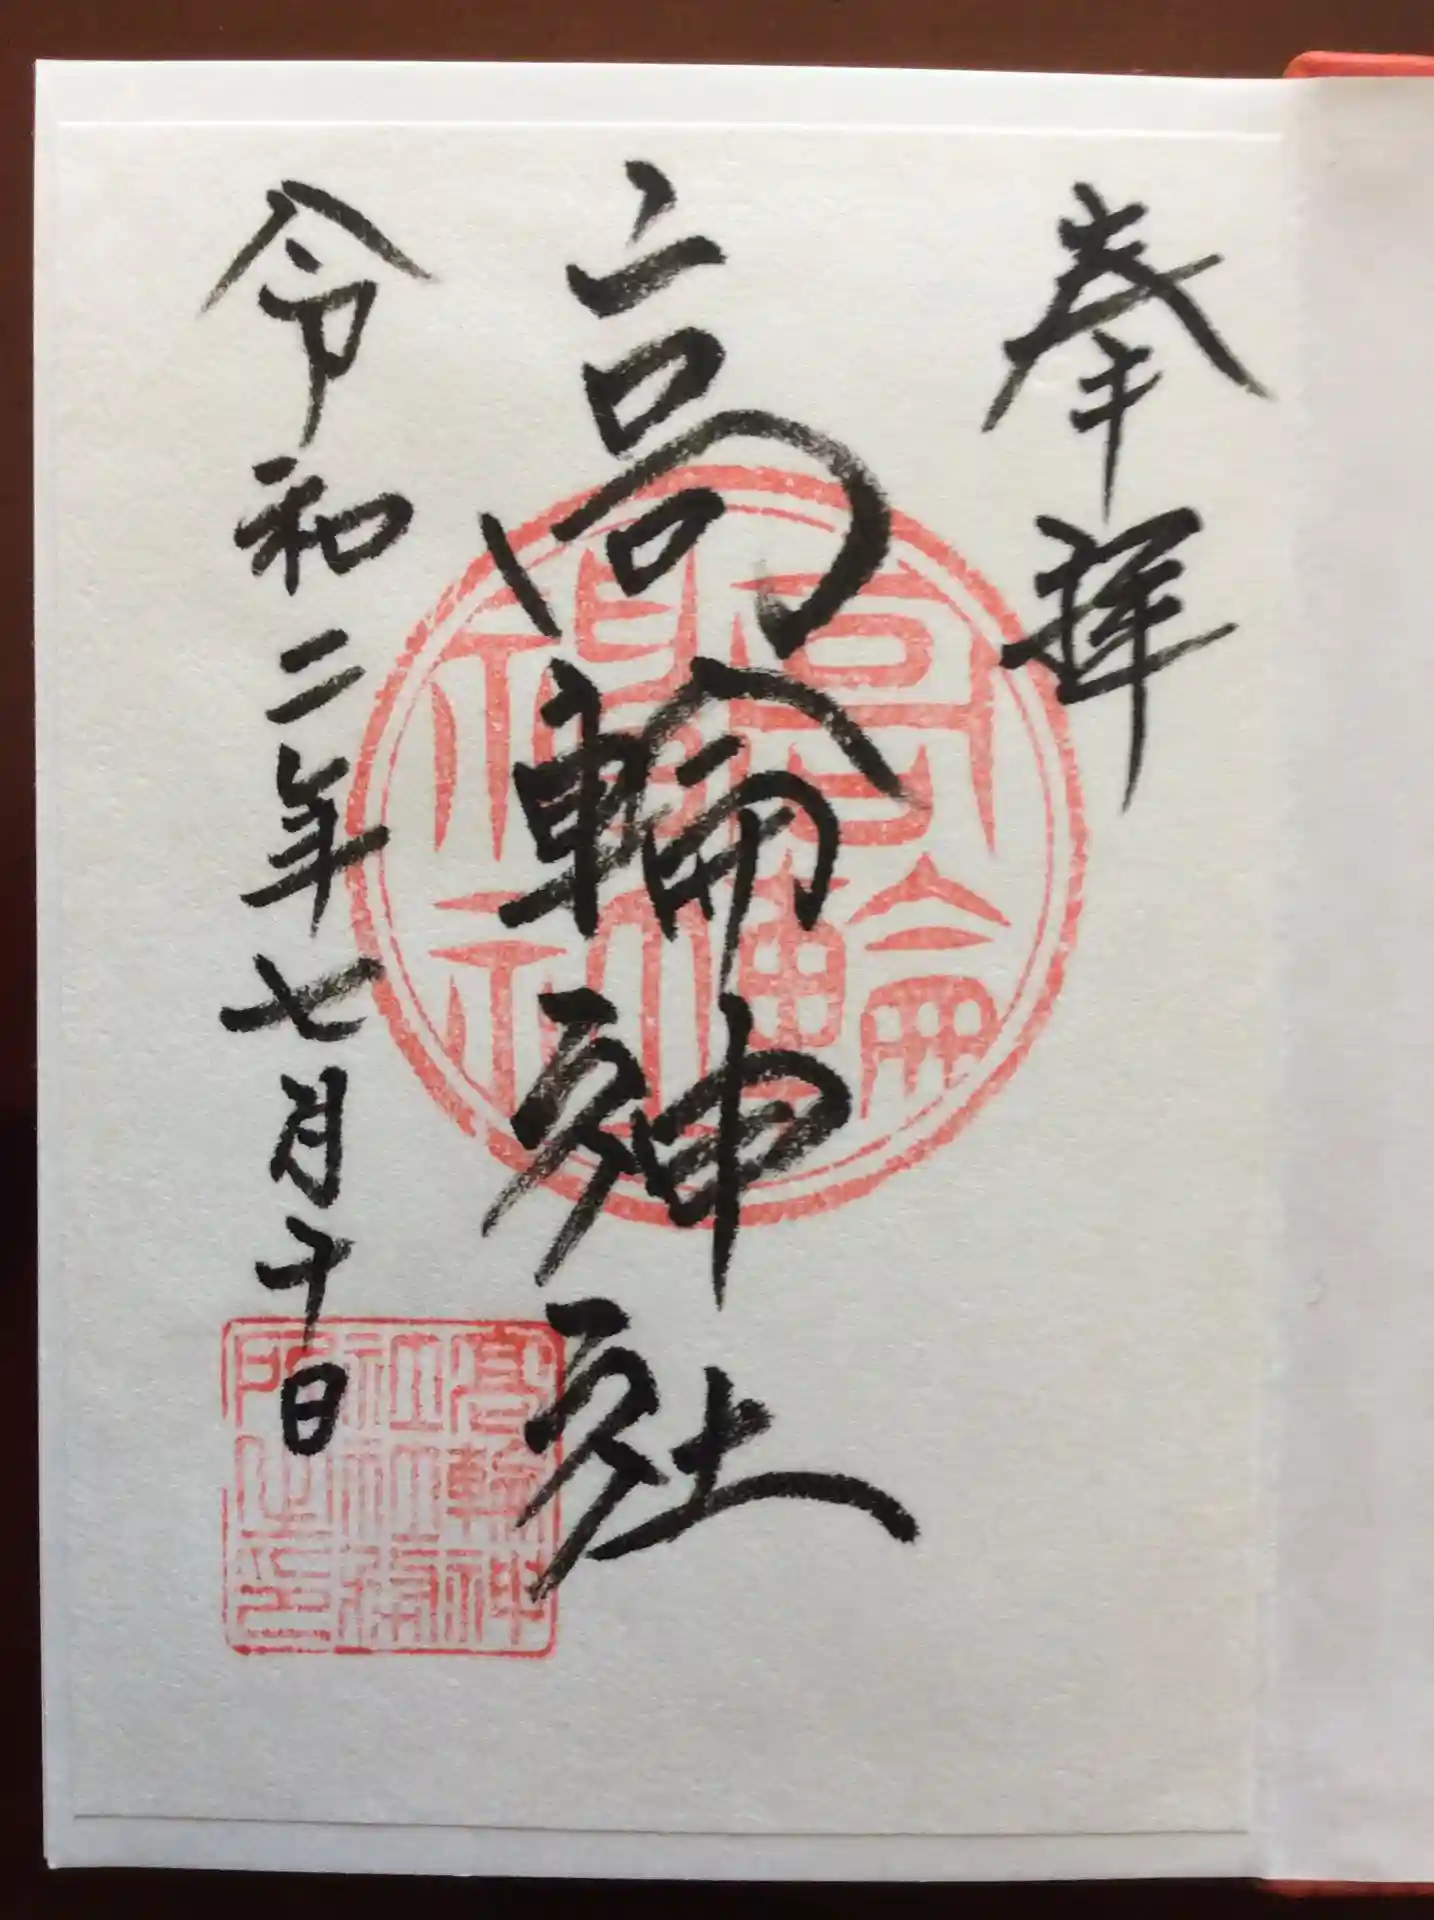 奉拝
高輪神社
令和二年七月十日
高輪神社
高輪神
社社務
所之印